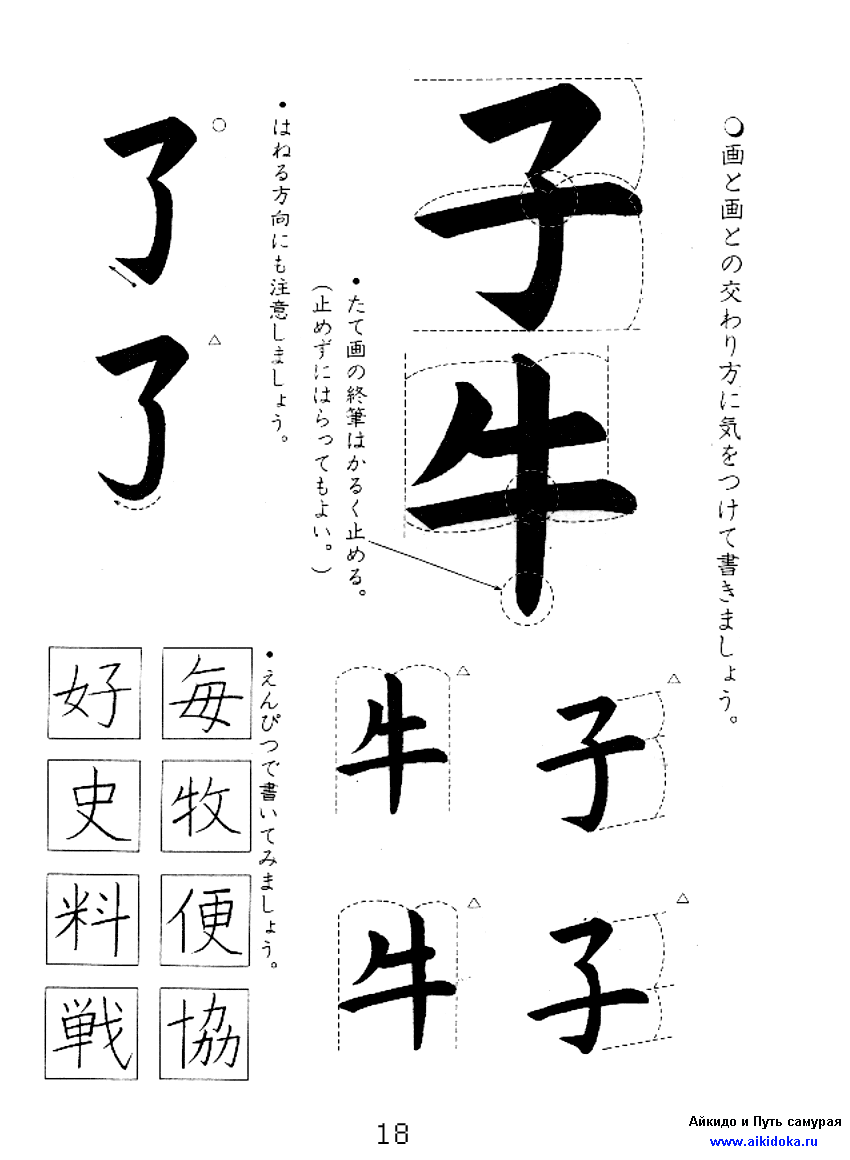 ○画と画との交わり方に気をつけて書きましょう。
子
牛
・たて画の終筆はかるく止める。
(止めずにはらってもよい。)
・はねる方向にも注意しましょう。
○
了
△
了
△
子
△
牛
△
子
△
牛
・えんぴつで書いてみましょう。
毎
牧
便
協
好
史
料
戦
18
Айкидо и Путь самурая
www.aikidoka.ru